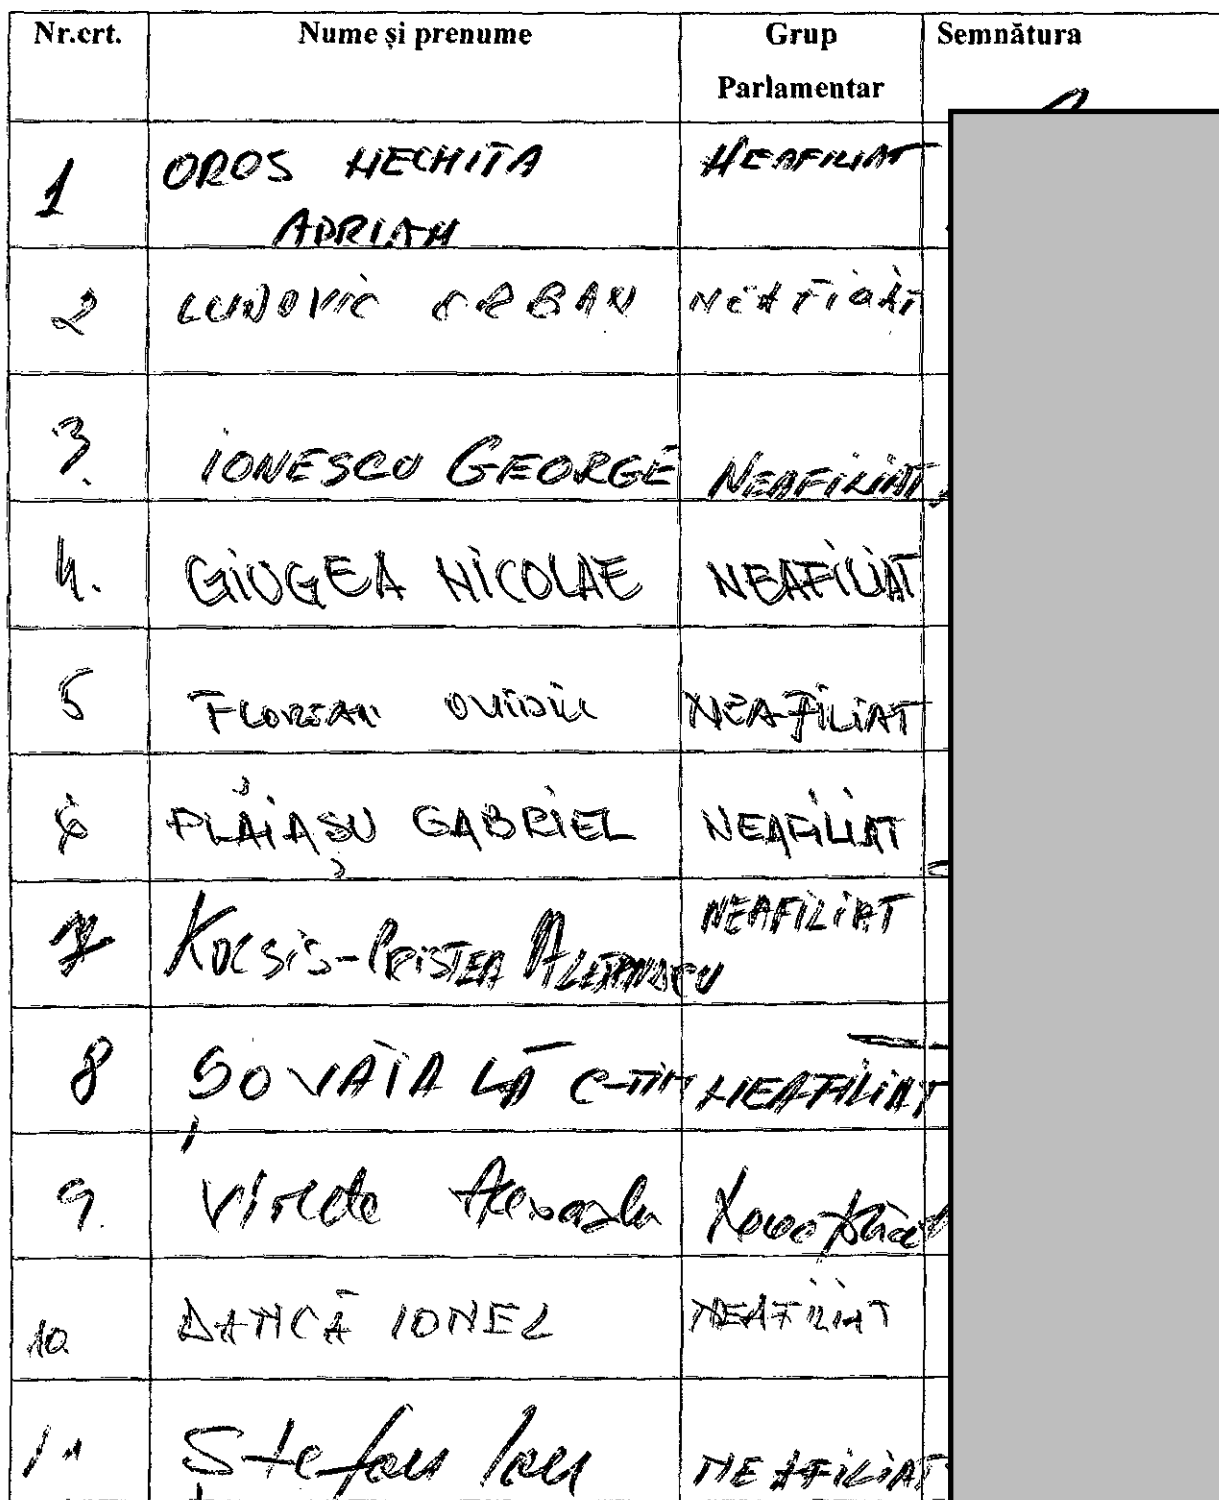 Nr.crt. Nume și prenume Grup Parlamentar Semnătura
1 OROS NECHITA ADRIAN NEAFILIAT
2 LUDOVIC ORBAN NEAFILIAT
3. IONESCU GEORGE NEAFILIAT
4. GIUGEA NICOLAE NEAFILIAT
5 FLOREAN OVIDIU NEAFILIAT
6 PLĂIAȘU GABRIEL NEAFILIAT
7 KOCSIS-CRISTEA ALEXANDRU NEAFILIAT
8 ȘOVĂIALĂ C-TIN NEAFILIAT
9. Neafiliat
10. DANCĂ IONEL NEAFILIAT
11 Ștefan Ion NEAFILIAT